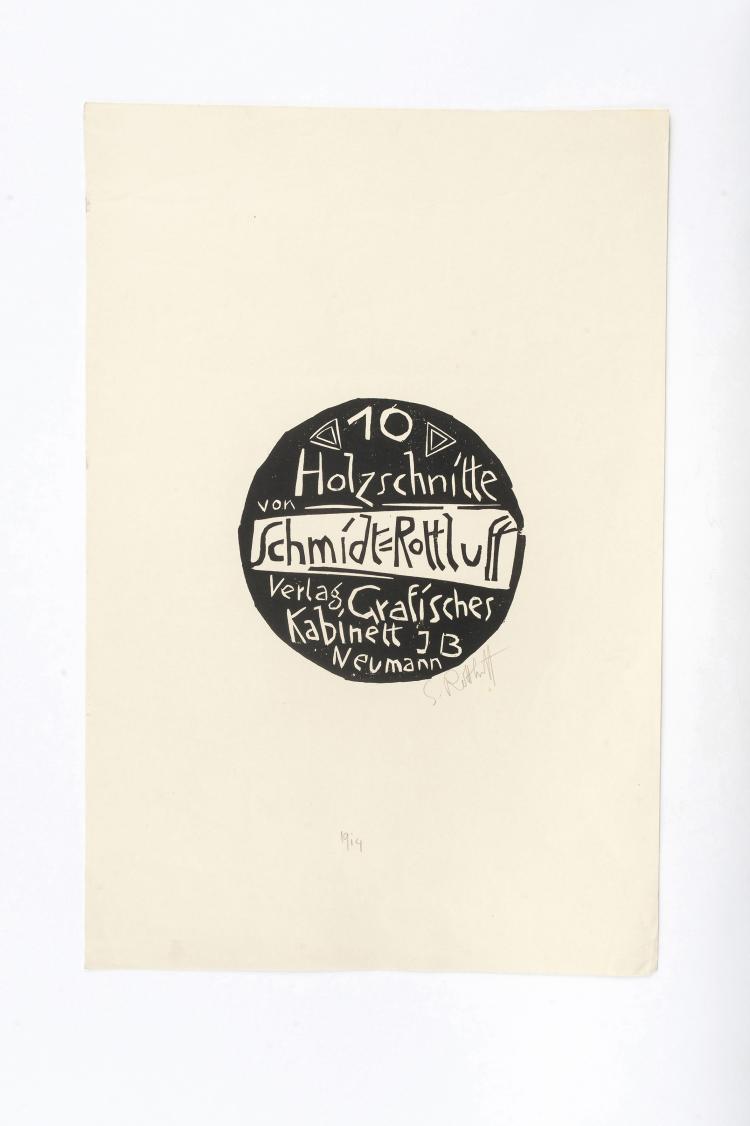 10
Holzschnitte
von
Schmidt=Rottluff
Verlag Grafisches
Kabinett J B
Neumann
S. Rottluff
1914